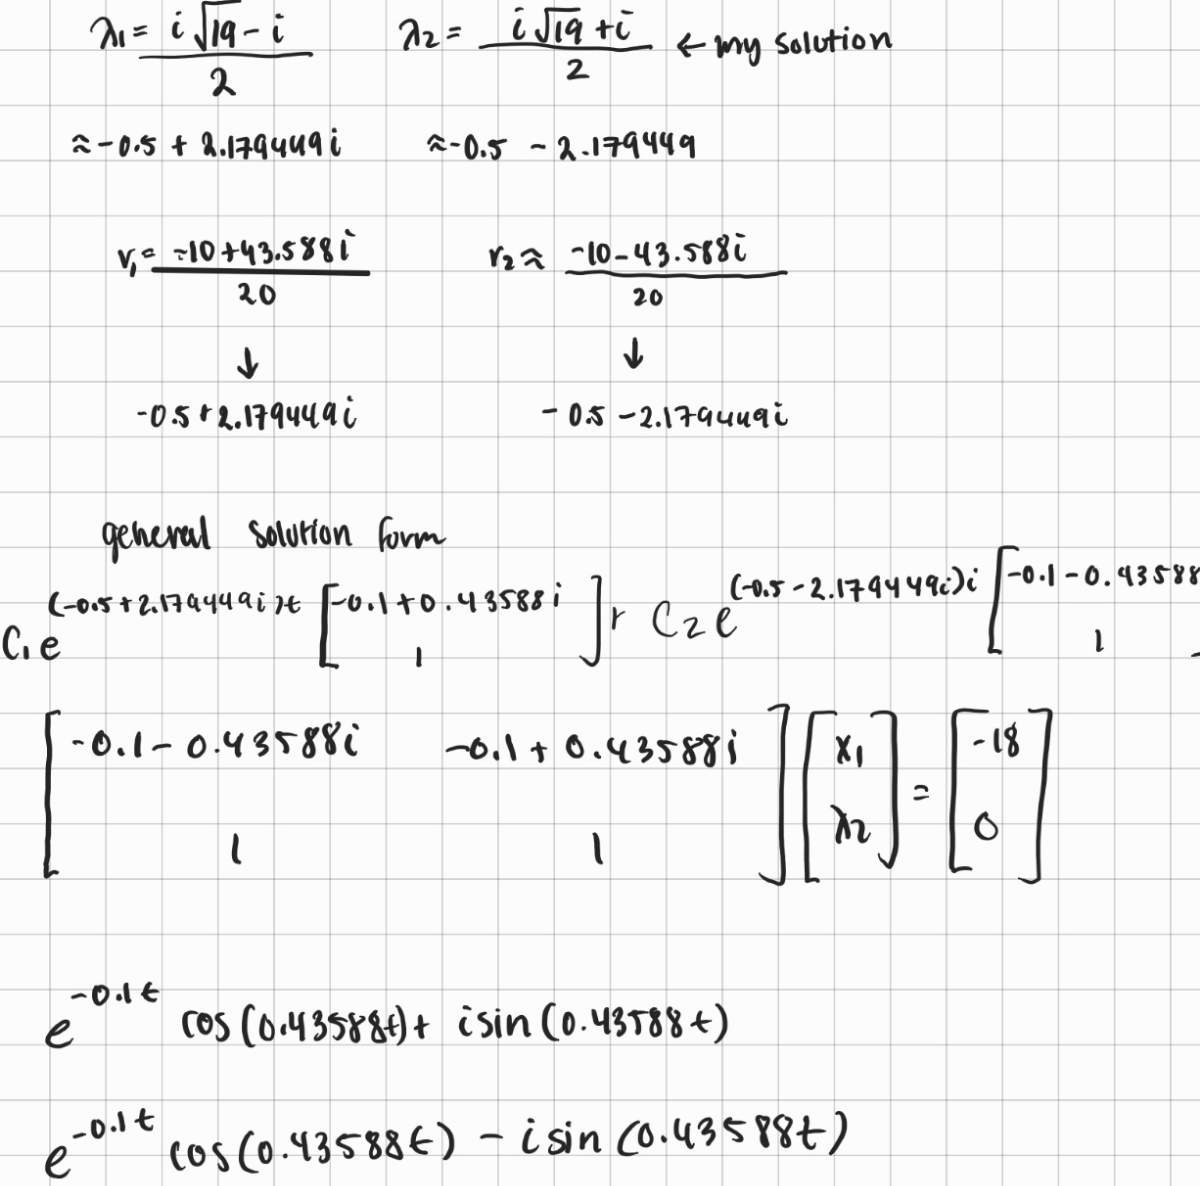 λ₁ = (i√19 - i)/2    λ₂ = (i√19 + i)/2 ← my solution
≈ -0.5 + 2.179449i    ≈ -0.5 - 2.179449
r₁ = (-10 + 43.588i)/20    r₂ ≈ (-10 - 43.588i)/20
↓    ↓
-0.5 + 2.179449i    -0.5 - 2.179449i
general solution form
C₁e^(-0.5 + 2.179449i)t [-0.1 + 0.43588i; 1] + C₂e^(-0.5 - 2.179449i)i [-0.1 - 0.43588; 1
[-0.1 - 0.43588i    -0.1 + 0.43588i; 1    1] [x₁; λ₂] = [-18; 0]
e^-0.1t cos(0.43588t) + isin(0.43588t)
e^-0.1t cos(0.43588t) - isin(0.43588t)